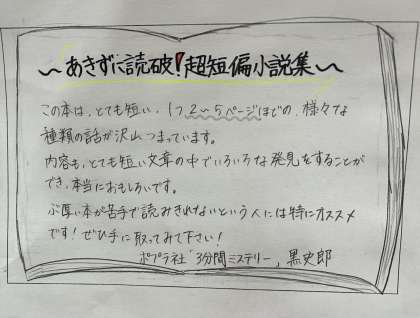 ～あきずに読破！超短偏小説集～
この本は、とても短い、1つ2～5ページほどの、様々な
種類の話が沢山つまっています。
内容も、とても短い文章の中でいろいろな発見をすることが
でき、本当におもしろいです。
ぶ厚い本が苦手で読みきれないという人には特にオススメ
です！ぜひ手に取ってみて下さい！
ポプラ社「3分間ミステリー」黒史郎